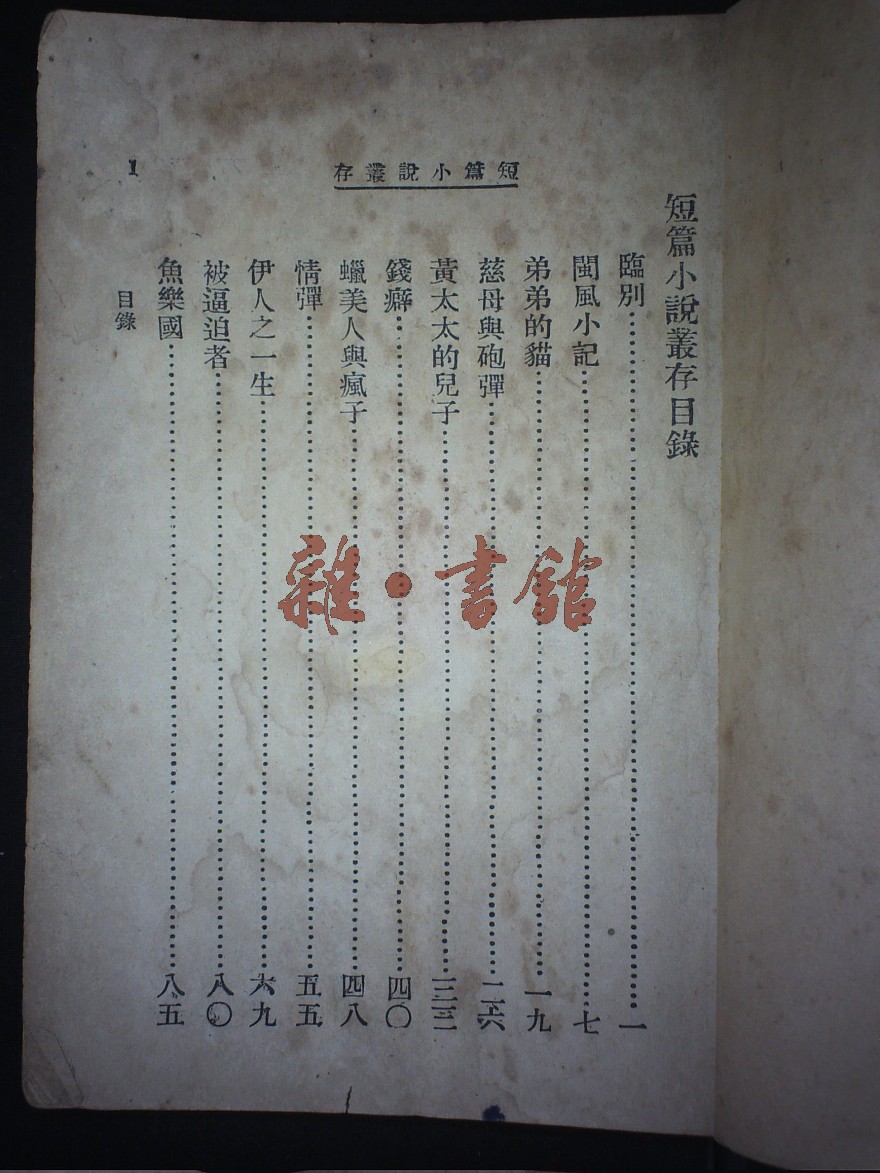 短篇小說叢存
短篇小說叢存目錄
臨別……………………一
閩風小記……………………七
弟弟的貓……………………一九
慈母與砲彈……………………二六
黃太太的兒子……………………三三
錢癖……………………四〇
蠟美人與瘋子……………………四八
情彈……………………五五
伊人之一生……………………六九
被逼迫者……………………八〇
魚樂國……………………八五
目錄
1
雜·書館